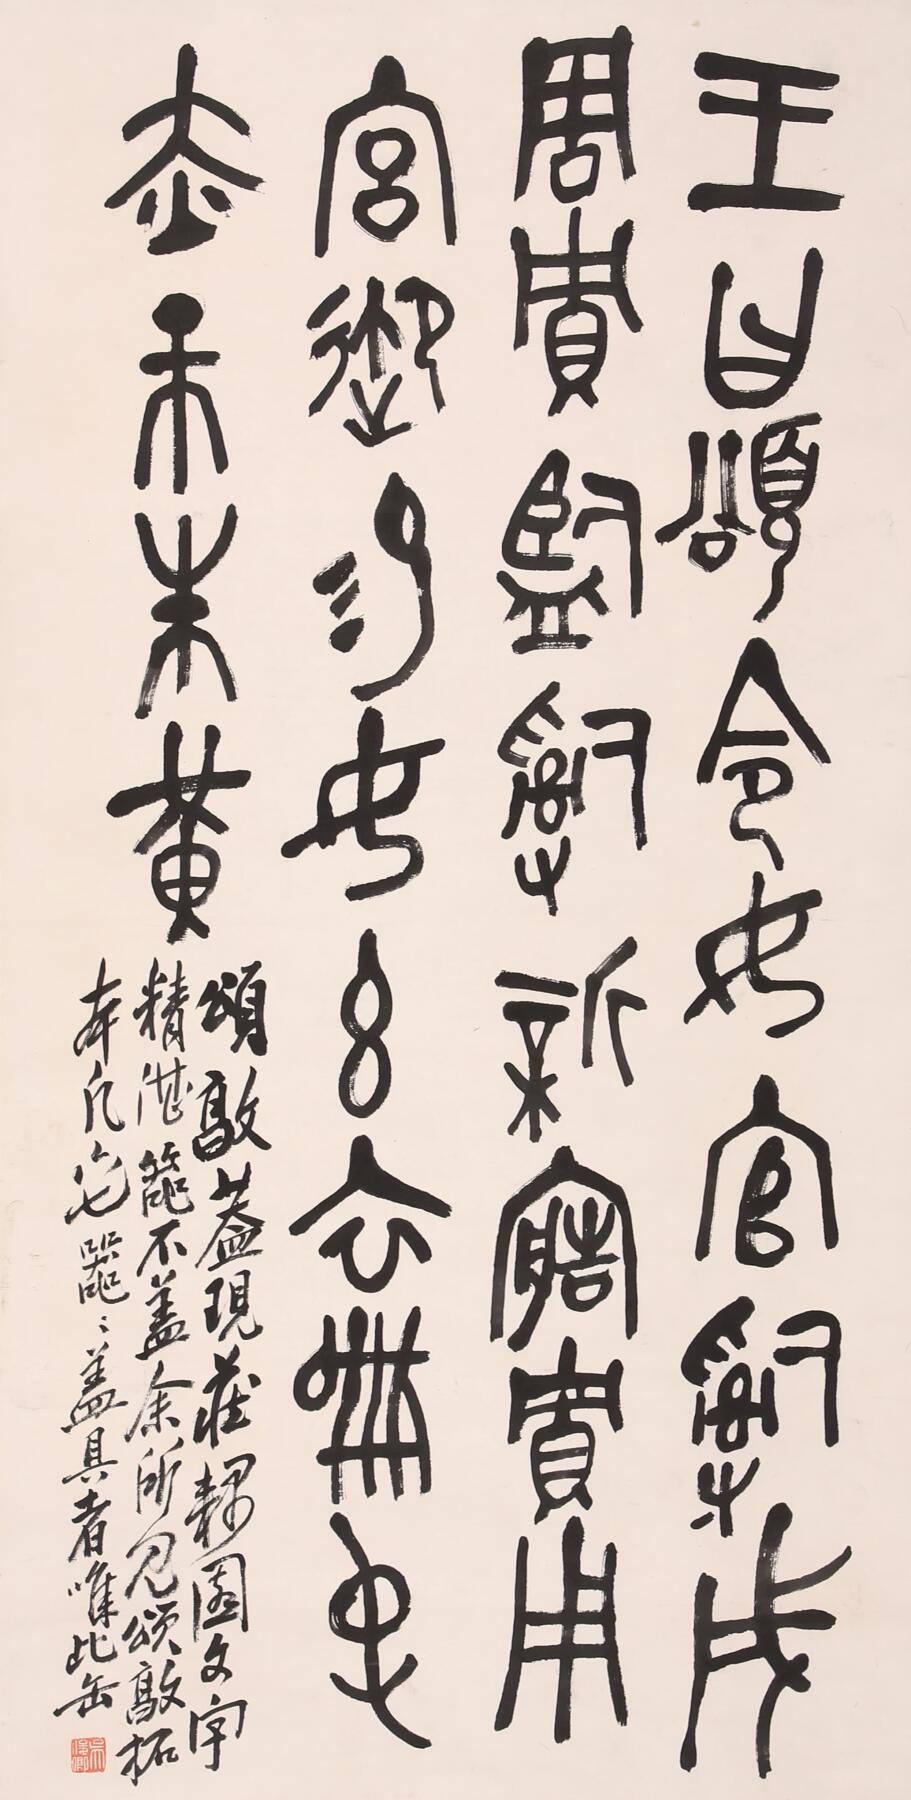 王曰頌令女官𤔲成
周貯監𤔲新寤貯用
宮御易女玄衣黹屯
赤巿朱黃
頌敦蓋現藏耦園文字
精湛器不蓋余所見頌敦拓
本凡器〻蓋具者唯此缶
吳俊卿